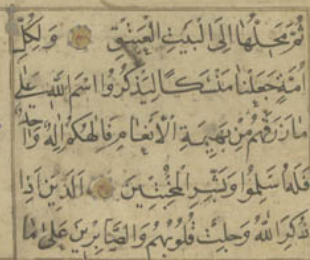 ثُمَّ مَحِلُّهَا إِلَى الْبَيْتِ الْعَتِيقِ وَلِكُلِّ
أُمَّةٍ جَعَلْنَا مَنْسَكًا لِيَذْكُرُوا اسْمَ اللَّهِ عَلَى
مَا رَزَقَهُمْ مِنْ بَهِيمَةِ الْأَنْعَامِ فَإِلَٰهُكُمْ إِلَٰهٌ وَاحِدٌ
فَلَهُ أَسْلِمُوا وَبَشِّرِ الْمُخْبِتِينَ الَّذِينَ إِذَا
ذُكِرَ اللَّهُ وَجِلَتْ قُلُوبُهُمْ وَالصَّابِرِينَ عَلَى مَا